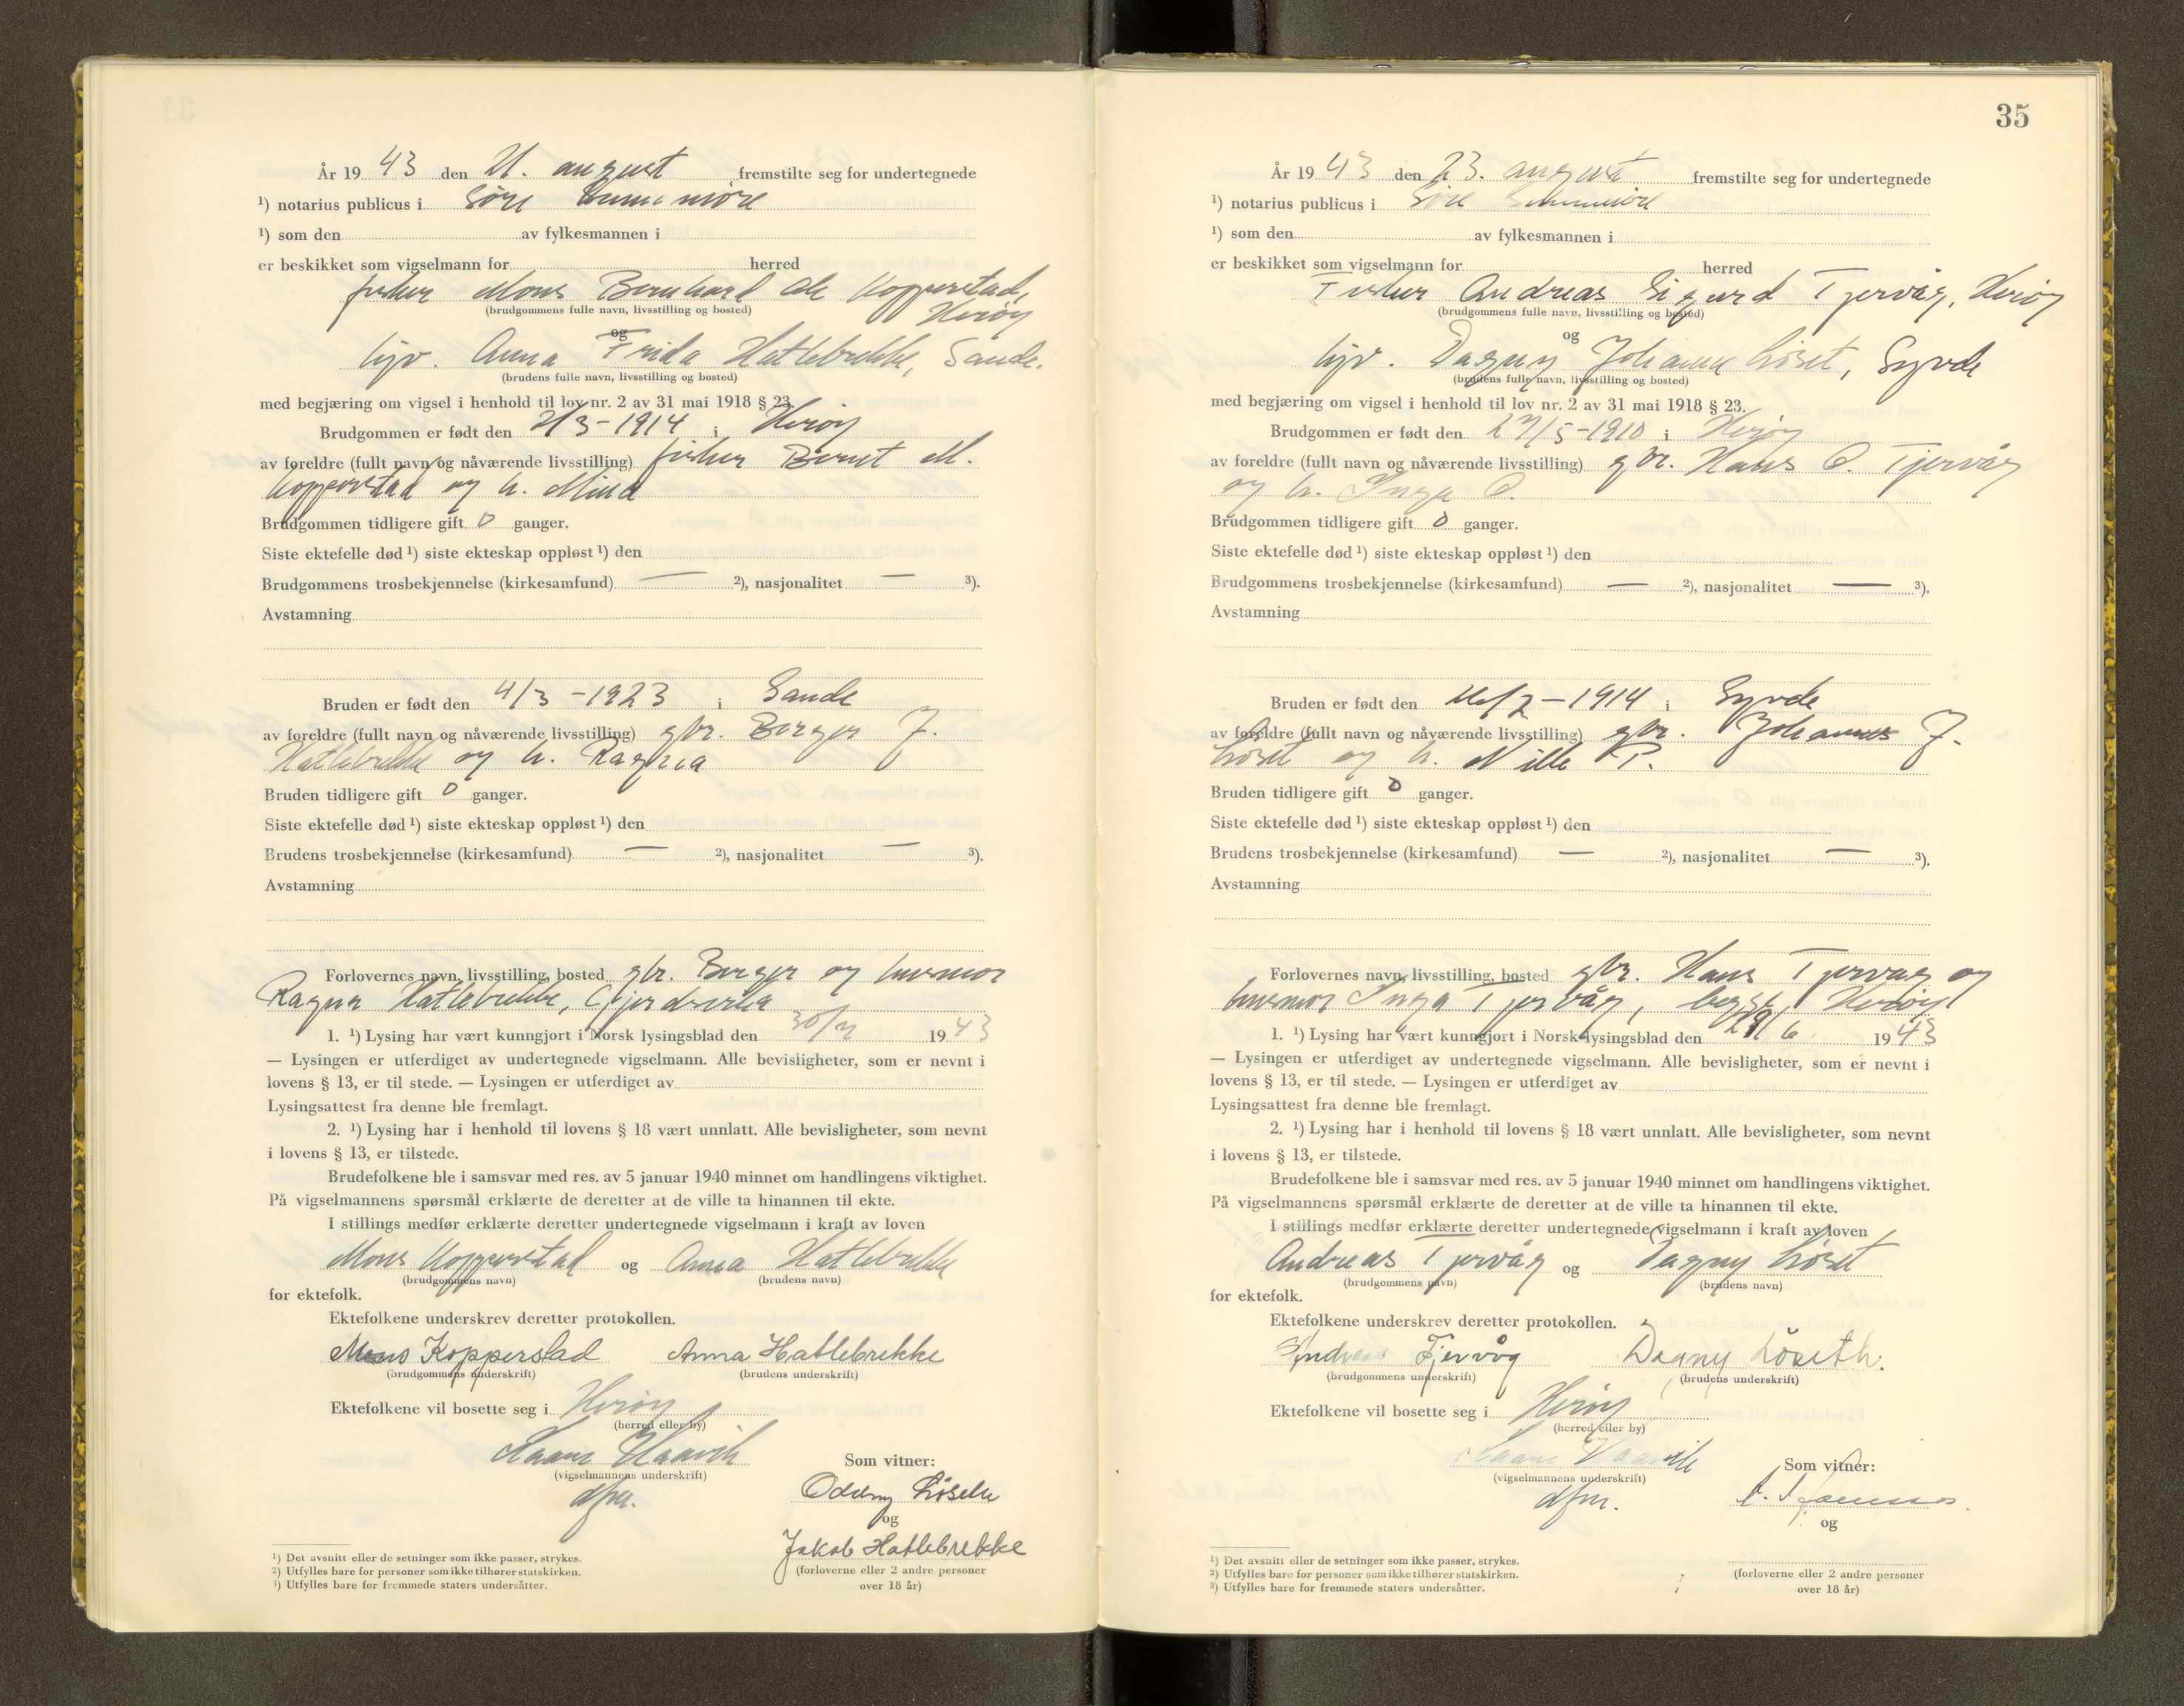 År 19 43 den 21. august fremstilte seg for undertegnede
¹) notarius publicus i Søre Sunnmøre
¹) som den av fylkesmannen i
er beskikket som vigselmann for herred
fisker Mons Bernhard Ole Kopperstad,
Herøy
(brudgommens fulle navn, livsstilling og bosted)
og
ugv. Anna Frida Hatlebrekke, Sande.
(brudens fulle navn, livsstilling og bosted)
med begjæring om vigsel i henhold til lov nr. 2 av 31 mai 1918 § 23.
Brudgommen er født den 21/3-1914 i Herøy
av foreldre (fullt navn og nåværende livsstilling) fisker Bernt M.
Kopperstad og h. Mina
Brudgommen tidligere gift 0 ganger.
Siste ektefelle død ¹) siste ekteskap oppløst ¹) den
Brudgommens trosbekjennelse (kirkesamfund) — ²), nasjonalitet — ³).
Avstamning
Bruden er født den 4/3-1923 i Sande
av foreldre (fullt navn og nåværende livsstilling) gbr. Berger J.
Hatlebrekke og h. Ragna
Bruden tidligere gift 0 ganger.
Siste ektefelle død ¹) siste ekteskap oppløst ¹) den
Brudens trosbekjennelse (kirkesamfund) — ²), nasjonalitet — ³).
Avstamning
Forlovernes navn, livsstilling, bosted gbr. Berger og husmor
Ragna Hatlebrekke, Gjerdsvika
1. ¹) Lysing har vært kunngjort i Norsk lysingsblad den 30/7 19 43
— Lysingen er utferdiget av undertegnede vigselmann. Alle bevisligheter, som er nevnt i
lovens § 13, er til stede. — Lysingen er utferdiget av
Lysingsattest fra denne ble fremlagt.
2. ¹) Lysing har i henhold til lovens § 18 vært unnlatt. Alle bevisligheter, som nevnt
i lovens § 13, er tilstede.
Brudefolkene ble i samsvar med res. av 5 januar 1940 minnet om handlingens viktighet.
På vigselmannens spørsmål erklærte de deretter at de ville ta hinannen til ekte.
I stillings medfør erklærte deretter undertegnede vigselmann i kraft av loven
Mons Kopperstad og Anna Hatlebrekke
(brudgommens navn) (brudens navn)
for ektefolk.
Ektefolkene underskrev deretter protokollen.
Mons Kopperstad Anna Hatlebrekke
(brudgommens underskrift) (brudens underskrift)
Ektefolkene vil bosette seg i Herøy
(herred eller by)
Haavik
(vigselmannens underskrift)
dfm.
Som vitner:
Oddny
og
Jakob Hatlebrekke
(forloverne eller 2 andre personer
over 18 år)
¹) Det avsnitt eller de setninger som ikke passer, strykes.
²) Utfylles bare for personer som ikke tilhører statskirken.
³) Utfylles bare for fremmede staters undersåtter.
35
År 19 43 den 23. august fremstilte seg for undertegnede
¹) notarius publicus i Søre Sunnmøre
¹) som den av fylkesmannen i
er beskikket som vigselmann for herred
Fisker Andreas Sigurd Tjervåg, Herøy
(brudgommens fulle navn, livsstilling og bosted)
og
ugv. Dagny Johanne Løset, Syvde
(brudens fulle navn, livsstilling og bosted)
med begjæring om vigsel i henhold til lov nr. 2 av 31 mai 1918 § 23.
Brudgommen er født den 27/5-1910 i Herøy
av foreldre (fullt navn og nåværende livsstilling) gbr. Hans O. Tjervåg
og h. Inga O.
Brudgommen tidligere gift 0 ganger.
Siste ektefelle død ¹) siste ekteskap oppløst ¹) den
Brudgommens trosbekjennelse (kirkesamfund) — ²), nasjonalitet — ³).
Avstamning
Bruden er født den 1914 i Syvde
av foreldre (fullt navn og nåværende livsstilling) gbr. Johannes J.
Løset og h. Nille P.
Bruden tidligere gift 0 ganger.
Siste ektefelle død ¹) siste ekteskap oppløst ¹) den
Brudens trosbekjennelse (kirkesamfund) — ²), nasjonalitet — ³).
Avstamning
Forlovernes navn, livsstilling, bosted gbr. Hans Tjervåg og
husmor Inga Tjervåg, begge Herøy
1. ¹) Lysing har vært kunngjort i Norsk lysingsblad den 29/6 19 43
— Lysingen er utferdiget av undertegnede vigselmann. Alle bevisligheter, som er nevnt i
lovens § 13, er til stede. — Lysingen er utferdiget av
Lysingsattest fra denne ble fremlagt.
2. ¹) Lysing har i henhold til lovens § 18 vært unnlatt. Alle bevisligheter, som nevnt
i lovens § 13, er tilstede.
Brudefolkene ble i samsvar med res. av 5 januar 1940 minnet om handlingens viktighet.
På vigselmannens spørsmål erklærte de deretter at de ville ta hinannen til ekte.
I stillings medfør erklærte deretter undertegnede vigselmann i kraft av loven
Andreas Tjervåg og Dagny Løset
(brudgommens navn) (brudens navn)
for ektefolk.
Ektefolkene underskrev deretter protokollen.
Andreas Tjervåg Dagny Löseth.
(brudgommens underskrift) (brudens underskrift)
Ektefolkene vil bosette seg i Herøy
(herred eller by)
Haavik
(vigselmannens underskrift)
dfm.
Som vitner:
og
(forloverne eller 2 andre personer
over 18 år)
¹) Det avsnitt eller de setninger som ikke passer, strykes.
²) Utfylles bare for personer som ikke tilhører statskirken.
³) Utfylles bare for fremmede staters undersåtter.